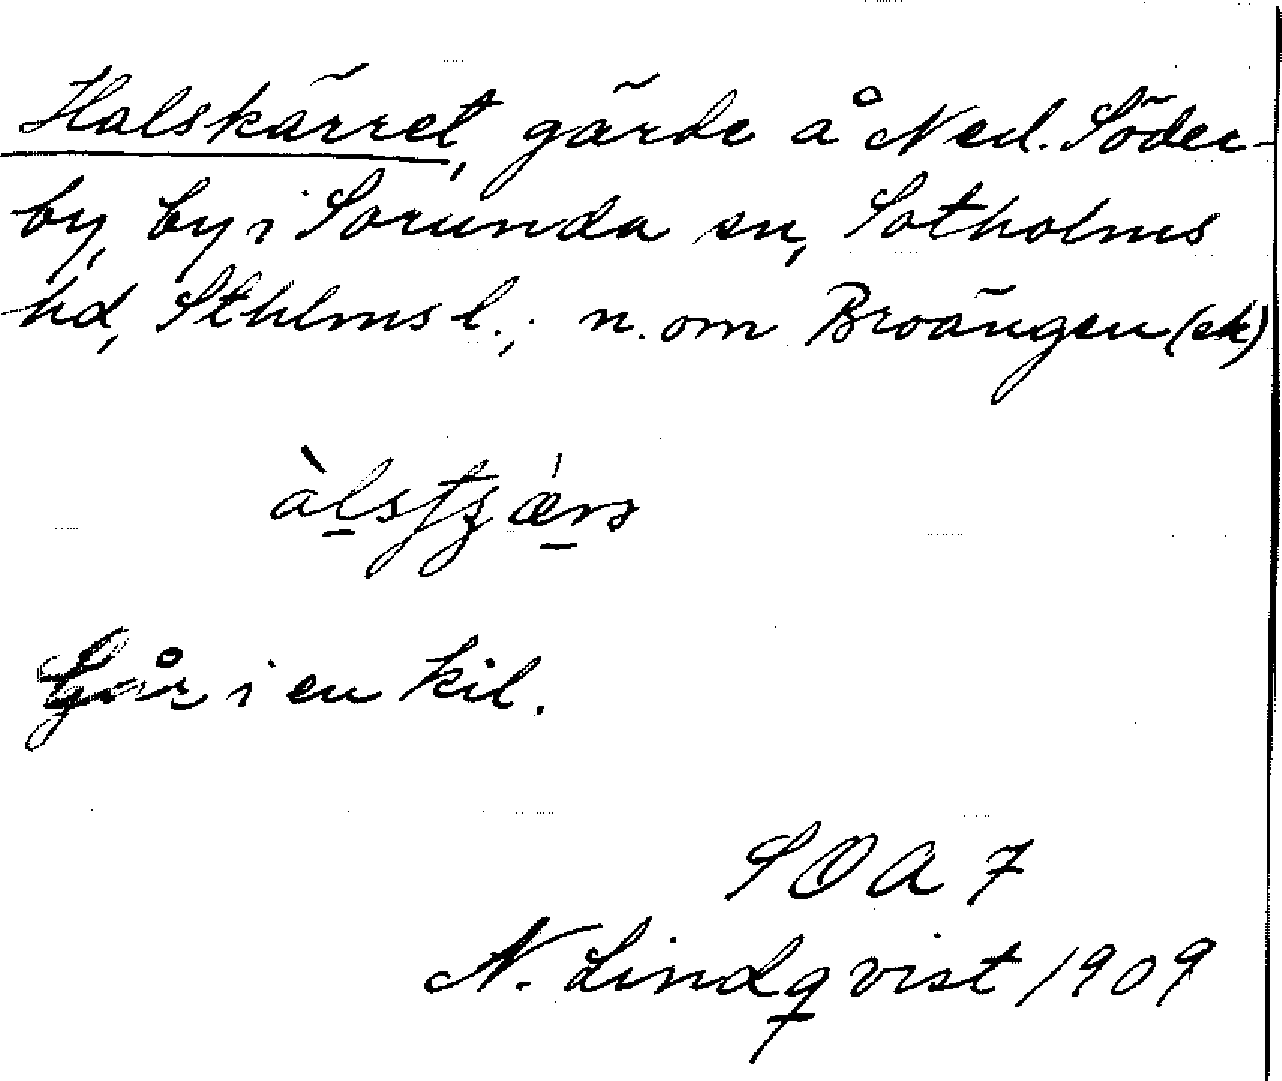 Halskärret, gärde å Ned. Söder-
by, by i Sorunda sn, Sotholms
hd, Sthlms l.; n. om Broängen (ek)
Går i en kil.
SOA 7
N. Lindqvist 1909